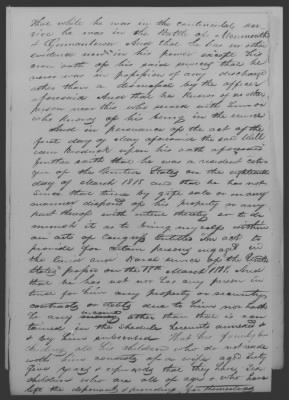 that while he was in the continental ser
vice he was in the Battle of Monmouth
& Germantown And that he has no other
evidence now in his power except his
own oath of his said services that he
never was in possession of any discharge
other than a discharge by the officer
aforesaid And that he knows of no other
person now
who knows of his being in the service
And in pursuance of the act of the
first day of May aforesaid the said
upon his oath aforesaid
further saith that he was a resident citi
zen of the United States on the eighteenth
day of March 1818 and that he has not
since that time by gift sale or in any
manner disposed of his property or any
part thereof with intent thereby so to di
minish it as to bring myself within
an act of Congress entitled An act to
provide for certain persons engaged in
the land and Naval service of the United
States passed on the 18th March 1818. And
that he has not nor has any person in
trust for him any property or security
contracts or debts due to him nor has
he any income other than is con
tained in the schedule hereunto annexed
& by him subscribed That his family
all his children who do not reside
with him consists of a wife aged Sixty
five years & upwards that they have six
children who are all of age & who have
left the deponent